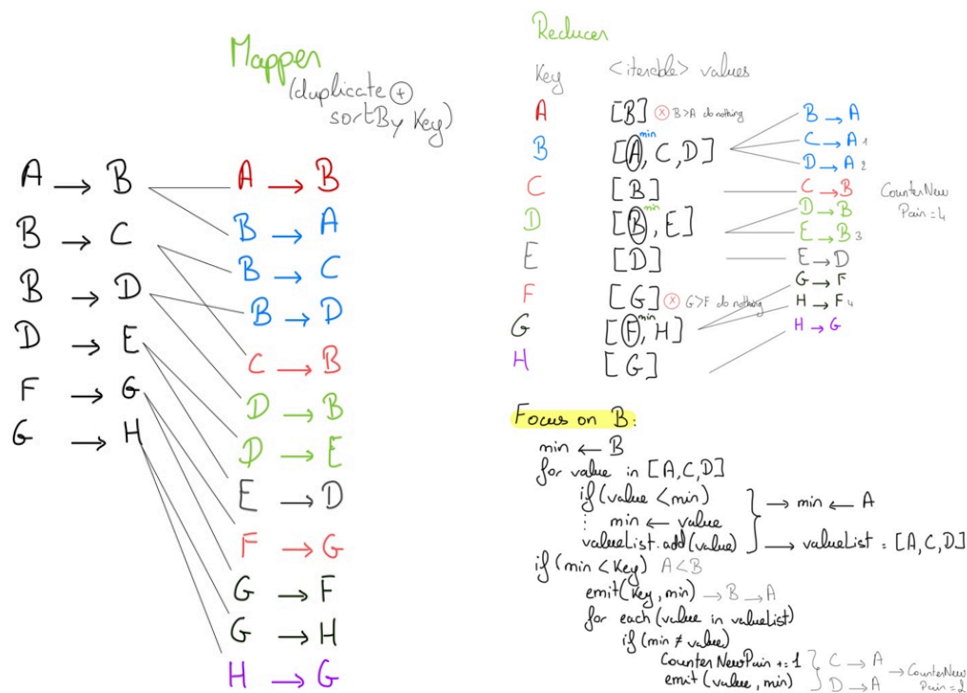 Mapper
(duplicate +
sortBy Key)
A → B
B → C
B → D
D → E
F → G
G → H
A → B
B → A
B → C
B → D
C → B
D → B
D → E
E → D
F → G
G → F
G → H
H → G
Reducer
Key <iterable> values
A [B] x B>A do nothing
B [A, C, D] min
C [B]
D [B, E] min
E [D]
F [G] x G>F do nothing
G [F, H] min
H [G]
B → A
C → A 1
D → A 2
C → B
D → B
E → B 3
E → D
G → F
H → F 4
H → G
CounterNew
Pair = 4
Focus on B:
min ← B
for value in [A,C,D]
if (value < min) → min ← A
min ← value
valueList.add(value) → valueList = [A,C,D]
if (min < Key) A<B
emit(Key, min) → B → A
for each (value in valueList)
if (min ≠ value)
Counter NewPair += 1 C → A → CounterNew
emit (value, min) D → A Pair = 2